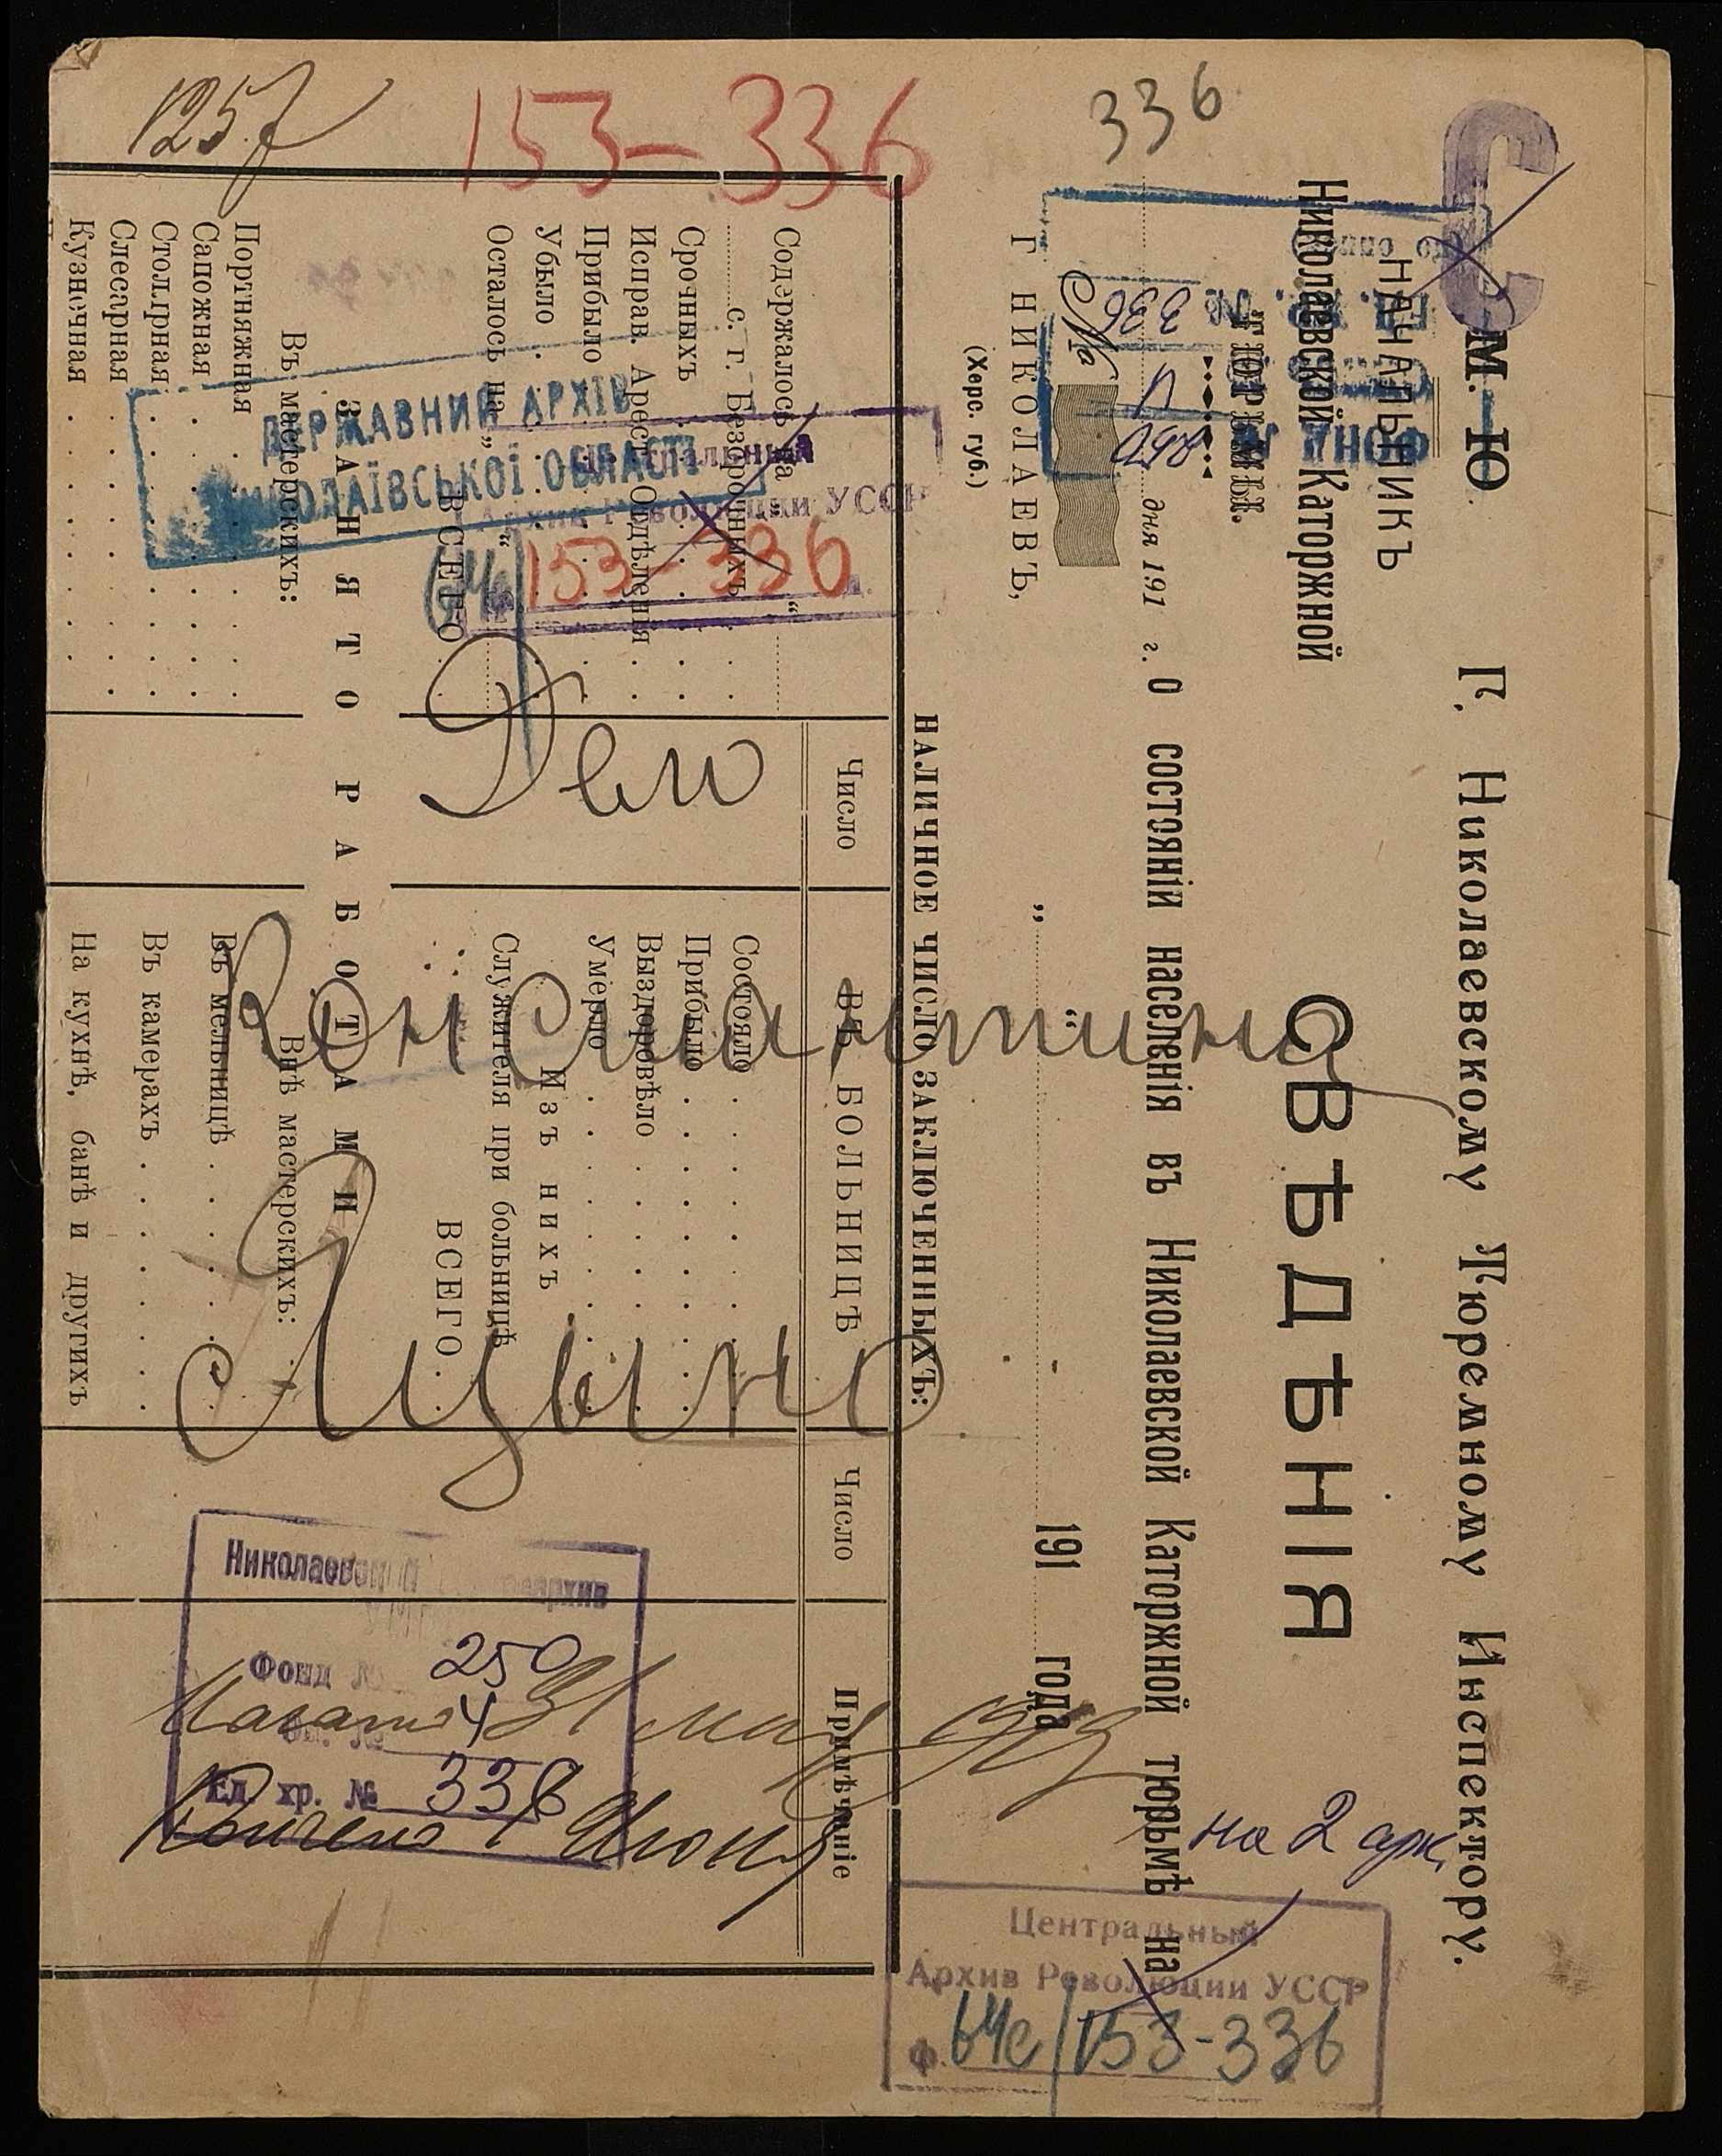 125
153-336
336
С
Фонд №
250
4
336
Дело
Константина
Яцына
Начато 31 мая 913
Кончено 1 Июня
на 2 арк.
ДЕРЖАВНИЙ АРХІВ
МИКОЛАЇВСЬКОЇ ОБЛАСТІ
Центральный
Архив Революции УССР
153-336
Николаевский
Фонд № 250
Оп. № 4
Ед. хр. № 336
Центральный
Архив Революции УССР
Ф. 64с/153-336
М. Ю.
НАЧАЛЬНИКЪ
Николаевской Каторжной
ТЮРЬМЫ.
дня 191 г.
№
Г НИКОЛАЕВЪ,
(Херс. губ.)
Г. Николаевскому Тюремному Инспектору.
СВѢДѢНІЯ
О состояніи населенія въ Николаевской Каторжной тюрьмѣ на
„ “ 191 года
НАЛИЧНОЕ ЧИСЛО ЗАКЛЮЧЕННЫХЪ:
Число
ВЪ БОЛЬНИЦѢ
Число
Примѣчаніе
Содержалось на „ “
с. г. Безсрочныхъ
Срочныхъ
Исправ. Арест. Отдѣленія
Прибыло
Убыло
Осталось на „ “
ВСЕГО
Состояло
Прибыло
Выздоровѣло
Умерло
Изъ нихъ
Служителя при больницѣ
ВСЕГО
ЗАНЯТО РАБОТАМИ
Въ мастерскихъ:
Портняжная
Сапожная
Столярная
Слесарная
Кузнечная
Внѣ мастерскихъ:
Въ мельницѣ
Въ камерахъ
На кухнѣ, банѣ и другихъ